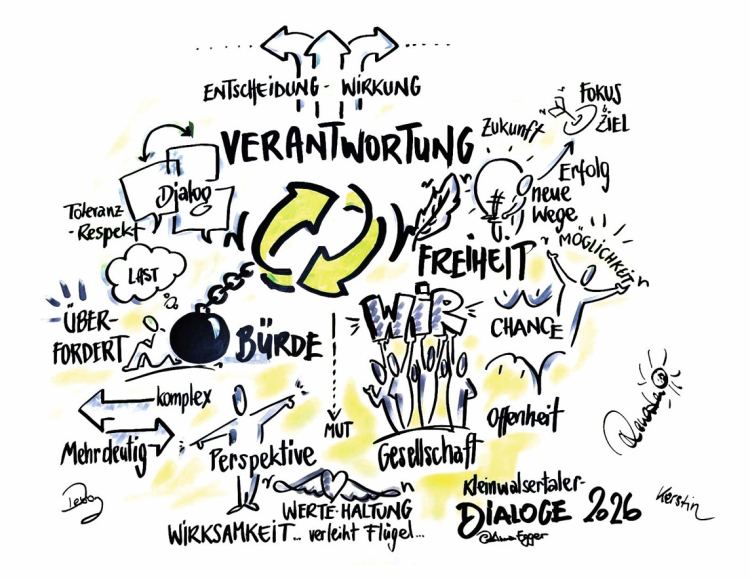 ENTSCHEIDUNG - WIRKUNG
VERANTWORTUNG
Dialog
Toleranz-
-Respekt
Zukunft
FOKUS
& ZIEL
Erfolg
neue
Wege
FREIHEIT
MÖGLICHKEIT
LAST
ÜBER-
FORDERT
BÜRDE
WIR
CHANCE
komplex
Mehrdeutig
Perspektive
MUT
Gesellschaft
Offenheit
WERTE-HALTUNG
WIRKSAMKEIT... verleiht Flügel...
Kleinwalsertaler-
DIALOGE 2026
Egger
Kerstin